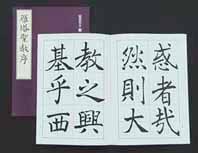 雁塔聖教序
惑者哉
然則大
教之興
基乎西